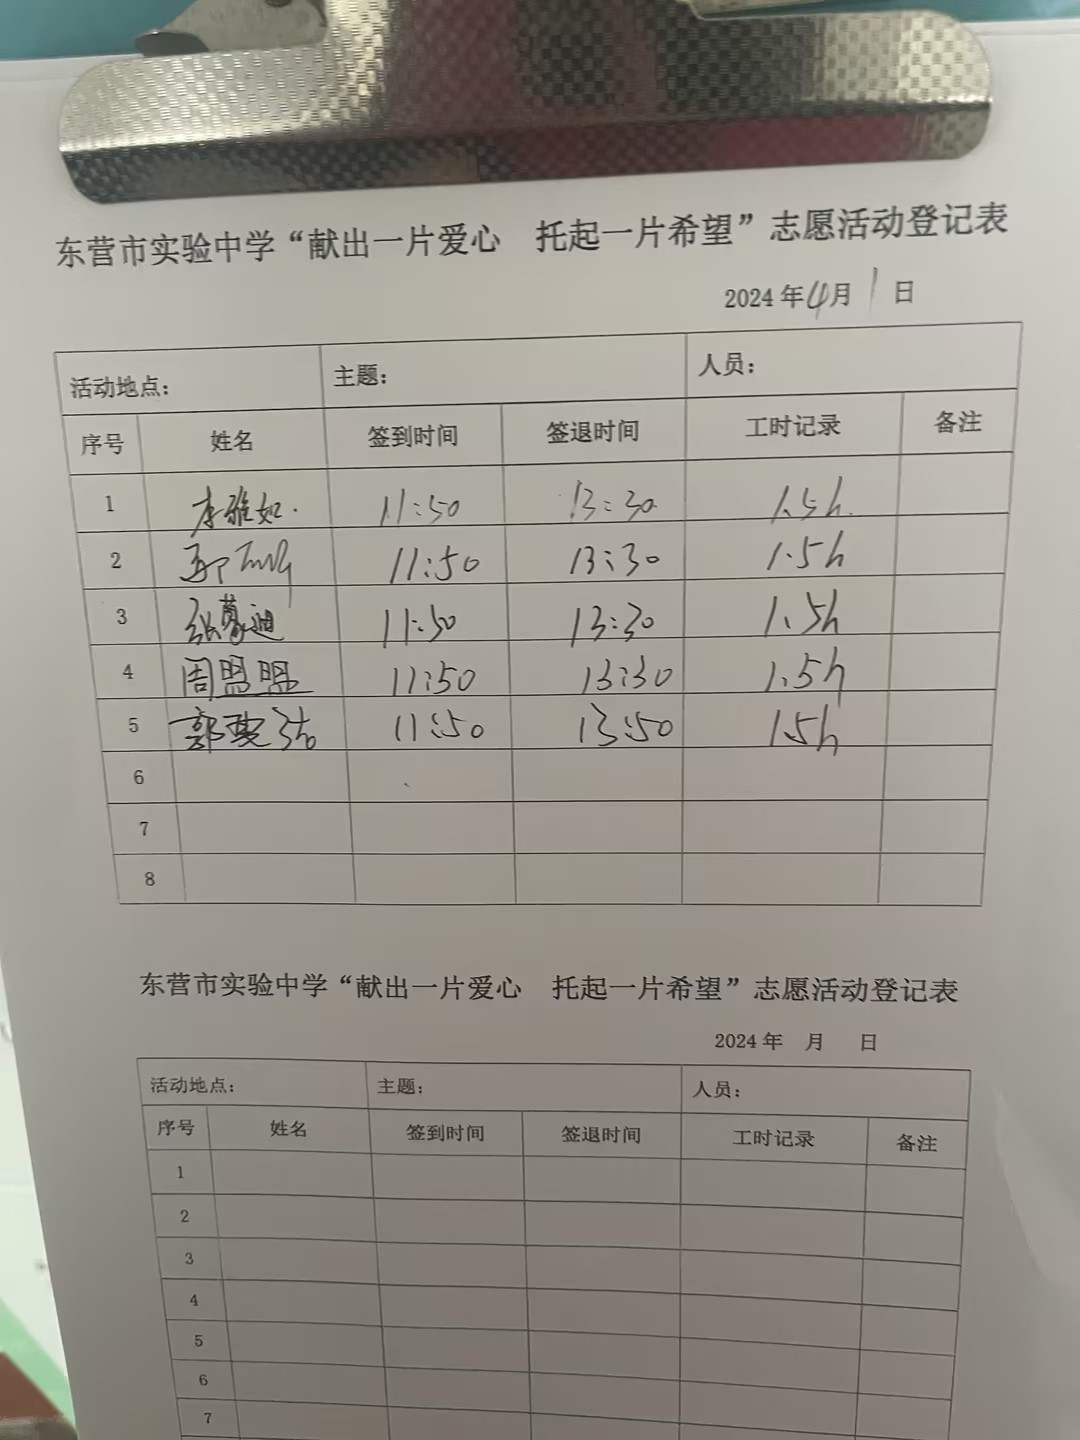 东营市实验中学“献出一片爱心 托起一片希望”志愿活动登记表
2024年4月1日
活动地点： 主题： 人员：
序号 姓名 签到时间 签退时间 工时记录 备注
1 李雅如. 11:50 13:30 1.5h.
2 11:50 13:30 1.5h
3 张蒙迪 11:50 13:30 1.5h
4 周盟盟 11:50 13:30 1.5h
5 郭 11:50 13:50 1.5h
6
7
8
东营市实验中学“献出一片爱心 托起一片希望”志愿活动登记表
2024年 月 日
活动地点： 主题： 人员：
序号 姓名 签到时间 签退时间 工时记录 备注
1
2
3
4
5
6
7